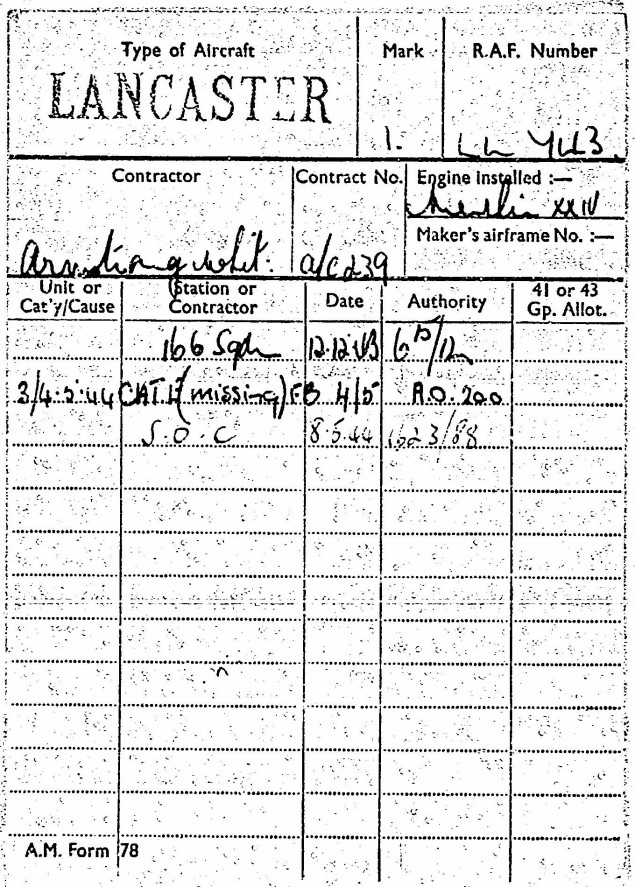 Type of Aircraft Mark R.A.F. Number
LANCASTER
1. LL 743
Contractor Contract No. Engine Installed :—
Merlin XXIV
Maker's airframe No. :—
Armstrong Whit. a/c 239
Unit or Cat'y/Cause Station or Contractor Date Authority 41 or 43 Gp. Allot.
166 Sqdn 12.12.43
3/4.5.44 CAT.E (missing) FB 4/5 A.O.200
S.O.C 8.5.44 1623/88
A.M. Form 78